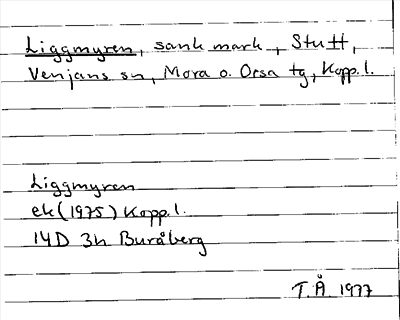 Liggmyren, sank mark, Stutt,
Venjans sn, Mora o. Orsa tg, Kopp. l.
Liggmyren
ek (1975) Kopp. l.
14D 3h Buråberg
T.Å. 1977